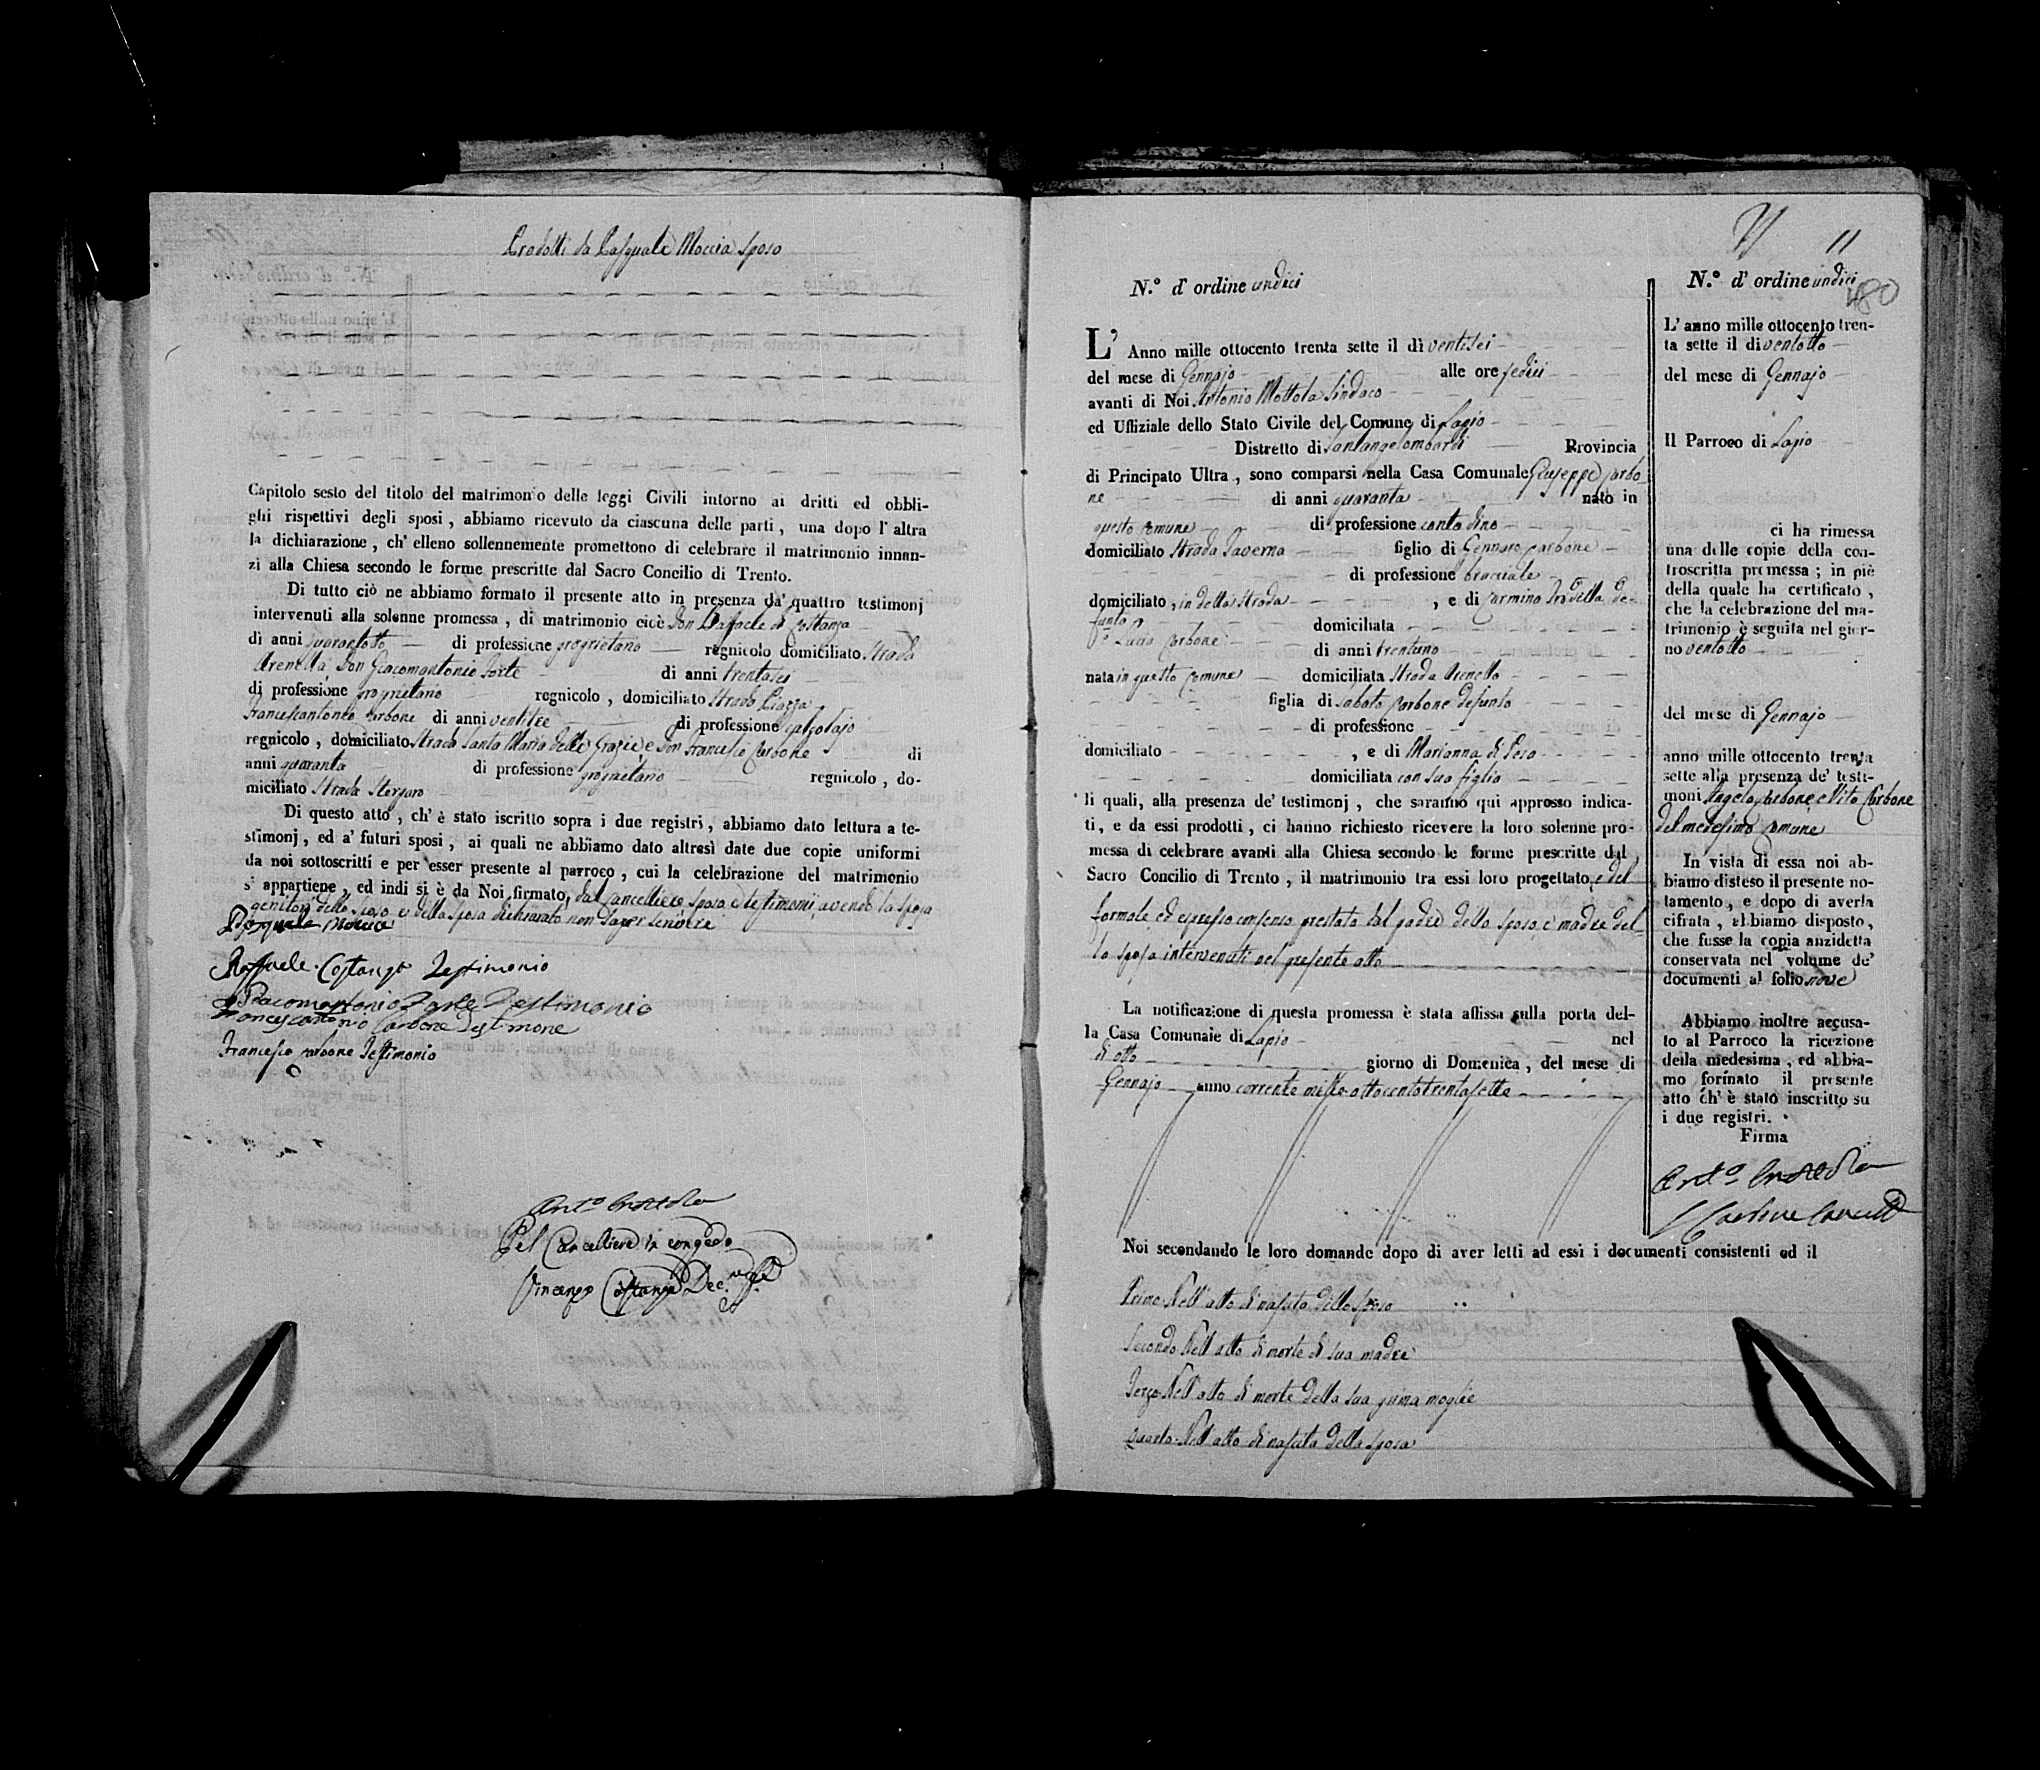 Prodotti da Pasquale Moccia sposo
Capitolo sesto del titolo del matrimonio delle leggi Civili intorno ai dritti ed obbli-
ghi rispettivi degli sposi, abbiamo ricevuto da ciascuna delle parti, una dopo l'altra
la dichiarazione, ch'elleno sollennemente promettono di celebrare il matrimonio innan-
zi alla Chiesa secondo le forme prescritte dal Sacro Concilio di Trento.
Di tutto ciò ne abbiamo formato il presente atto in presenza da' quattro testimonj
intervenuti alla solenne promessa, di matrimonio cioè Don Raffaele di Costanza
di anni quarantotto di professione proprietario regnicolo domiciliato Strada
Arenella Don Giacomantonio Forte di anni trentasei
di professione proprietario regnicolo, domiciliato Strada Piazza
Francescantonio Carbone di anni ventitre di professione calzolajo
regnicolo, domiciliato Strada Santa Maria delle Grazie e Don Francesco Carbone di
anni quaranta di professione proprietario regnicolo, do-
miciliato Strada
Di questo atto, ch'è stato iscritto sopra i due registri, abbiamo dato lettura a te-
stimonj, ed a' futuri sposi, ai quali ne abbiamo dato altresì date due copie uniformi
da noi sottoscritti e per esser presente al parroco, cui la celebrazione del matrimonio
s'appartiene, ed indi si è da Noi firmato, dal Cancelliere sposo e testimonii avendo la sposa
genitori dello sposo e della sposa dichiarato non saper scrivere
Pasquale Moccia
Raffaele Costanza Testimonio
Giacomantonio Forte Testimonio
Francescantonio Carbone Testimone
Francesco Carbone Testimonio
Ant.o Mottola
Pel Cancelliere in congedo
Vincenzo Costanza
11
N.° d'ordine undici
L'Anno mille ottocento trenta sette il dì ventisei
del mese di Gennajo alle ore sedici
avanti di Noi Antonio Mottola Sindaco
ed Uffiziale dello Stato Civile del Comune di Lapio
Distretto di Santangelombardi Provincia
di Principato Ultra, sono comparsi nella Casa Comunale Giuseppe Carbo
ne di anni quaranta nato in
questo Comune di professione contadino
domiciliato Strada Taverna figlio di Gennaro Carbone
di professione bracciale
domiciliato, in detta Strada, e di Carmina de-
funta domiciliata
e Lucia Carbone di anni trentuno
nata in questo Comune domiciliata Strada Arenella
figlia di Sabato Carbone defunto
di professione
domiciliato, e di Marianna di Peso
domiciliata con sua figlia
li quali, alla presenza de' testimonj, che saranno qui appresso indica-
ti, e da essi prodotti, ci hanno richiesto ricevere la loro solenne pro-
messa di celebrare avanti alla Chiesa secondo le forme prescritte dal
Sacro Concilio di Trento, il matrimonio tra essi loro progettato, e del
formale ed espresso consenso prestato dal padre dello sposo, e madre del-
la sposa intervenuti nel presente atto
La notificazione di questa promessa è stata affissa sulla porta del-
la Casa Comunale di Lapio nel
dì otto giorno di Domenica, del mese di
Gennajo anno corrente mille ottocentotrentasette
Noi secondando le loro domande dopo di aver letti ad essi i documenti consistenti ed il
Primo Dell'atto di nascita dello sposo
Secondo Dell'atto di morte di sua madre
Terzo Dell'atto di morte della sua prima moglie
Quarto Dell'atto di nascita della sposa
N.° d'ordine undici
480
L'anno mille ottocento tren-
ta sette il di ventotto
del mese di Gennajo
Il Parroco di Lapio
ci ha rimessa
una delle copie della con-
troscritta promessa; in piè
della quale ha certificato,
che la celebrazione del ma-
trimonio è seguita nel gior-
no ventotto
del mese di Gennajo
anno mille ottocento trenta
sette alla presenza de' testi-
moni Angelo Carbone e Vito Carbone
del medesimo Comune
In vista di essa noi ab-
biamo disteso il presente no-
tamento, e dopo di averla
cifrata, abbiamo disposto,
che fusse la copia anzidetta
conservata nel volume de'
documenti al folio nove
Abbiamo inoltre accusa-
to al Parroco la ricezione
della medesima, ed abbia-
mo formato il presente
atto ch'è stato inscritto su
i due registri.
Firma
Ant.o Mottola